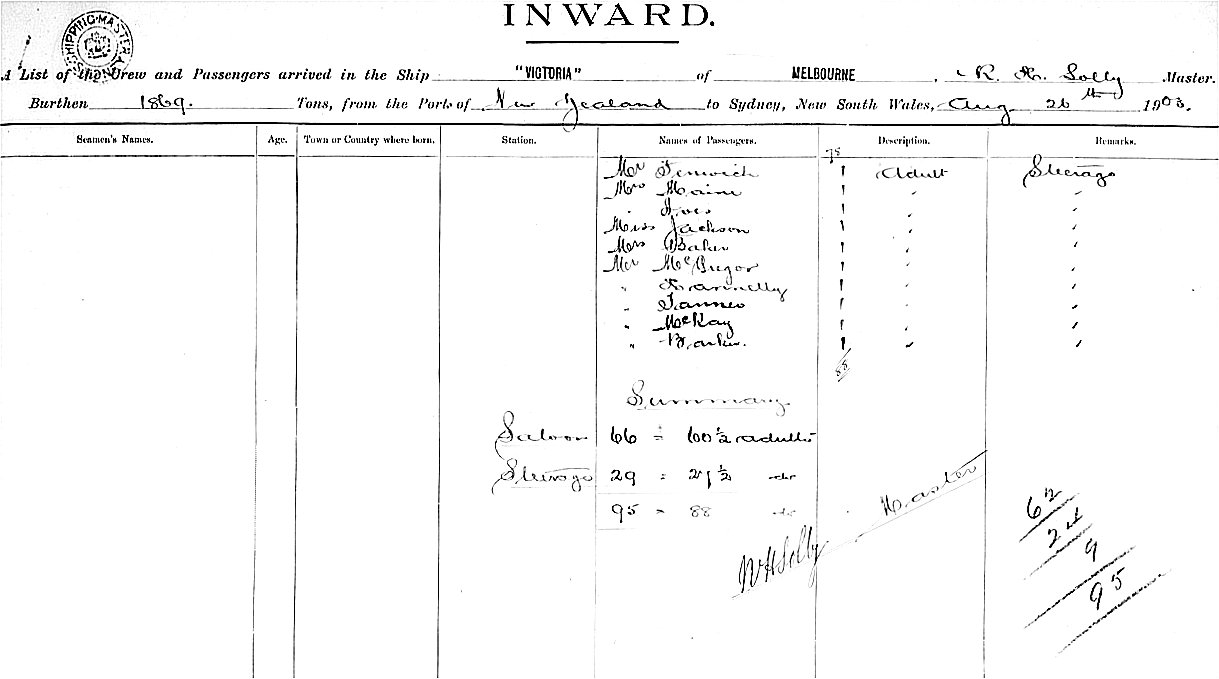 INWARD.
SHIPPING MASTER
A List of the Crew and Passengers arrived in the Ship "VICTORIA" of MELBOURNE, Solly Master.
Burthen 1869. Tons, from the Ports of New Zealand to Sydney, New South Wales, Aug 26th 1903.
Seamen's Names. Age. Town or Country where born. Station. Names of Passengers. Description. Remarks.
78
Mr Fenwick 1 Adult Steerage
Mrs 1 " "
" Ives 1 " "
Miss Jackson 1 " "
Mrs Baker 1 " "
Mr McGregor 1 " "
" 1 " "
" 1 " "
" McKay 1 " "
" Barker. 1 " "
88
Summary
Saloon 66 = 60½ adults
Steerage 29 = 27½ do
95 = 88 do
WHSolly Master
62
24
9
95